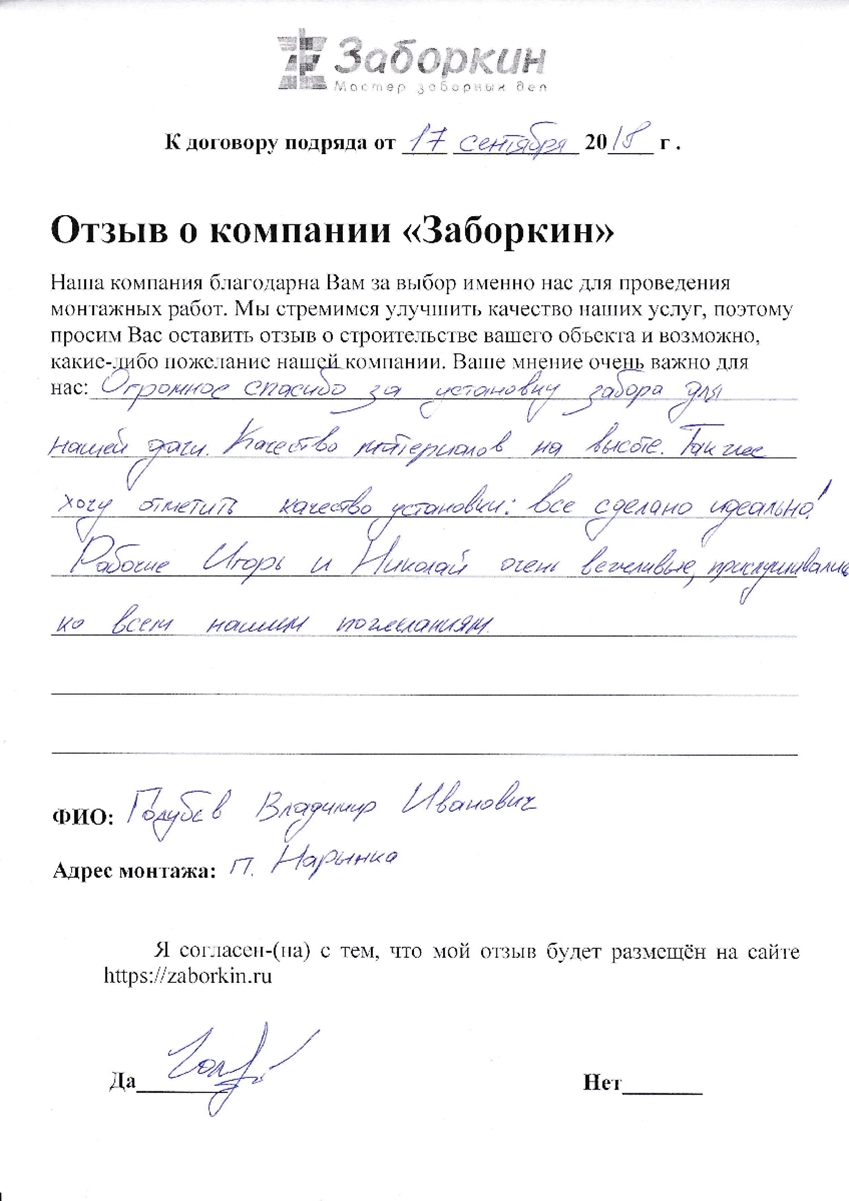 Заборкин
Мастер заборных дел
К договору подряда от 17 сентября 2018 г .
Отзыв о компании «Заборкин»
Наша компания благодарна Вам за выбор именно нас для проведения
монтажных работ. Мы стремимся улучшить качество наших услуг, поэтому
просим Вас оставить отзыв о строительстве вашего объекта и возможно,
какие-либо пожелание нашей компании. Ваше мнение очень важно для
нас: Огромное спасибо за установку забора для
нашей дачи. Качество материалов на высоте. Также
хочу отметить качество установки: все сделано идеально!
Рабочие Игорь и Николай очень вежливые, прислушивались
ко всем нашим пожеланиям.
ФИО: Голубев Владимир Иванович
Адрес монтажа: п. Нарынка
Я согласен-(на) с тем, что мой отзыв будет размещён на сайте
https://zaborkin.ru
Да________ Нет_______